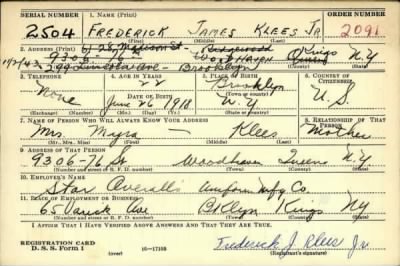 SERIAL NUMBER 1. NAME (Print) ORDER NUMBER
2504 FREDERICK JAMES KLEES JR 2091
(First) (Middle) (Last)
2. ADDRESS (Print)
Ridgewood Kings N.Y.
9306 Woodhaven Queens
299 Lincoln Ave - Brooklyn
(Number and street or R. F. D. number) (Town) (County) (State)
3. TELEPHONE 4. AGE IN YEARS 5. PLACE OF BIRTH 6. COUNTRY OF CITIZENSHIP
22 Brooklyn
None DATE OF BIRTH (Town or county) U.S.
June 26 1918 N.Y.
(Exchange) (Number) (Mo.) (Day) (Yr.) (State or country)
7. NAME OF PERSON WHO WILL ALWAYS KNOW YOUR ADDRESS 8. RELATIONSHIP OF THAT PERSON
Mrs. Myra Klees Mother
(Mr., Mrs., Miss) (First) (Middle) (Last)
9. ADDRESS OF THAT PERSON
9306-76 St Woodhaven Queens N.Y.
(Number and street or R. F. D. number) (Town) (County) (State)
10. EMPLOYER'S NAME
Star Overalls Uniform Mfg Co.
11. PLACE OF EMPLOYMENT OR BUSINESS
65 Varick Ave BKlyn Kings NY
(Number and street or R. F. D. number) (Town) (County) (State)
I AFFIRM THAT I HAVE VERIFIED ABOVE ANSWERS AND THAT THEY ARE TRUE.
REGISTRATION CARD
D. S. S. FORM 1 (over) 16-17105 Frederick J Klees Jr
(Registrant's signature)